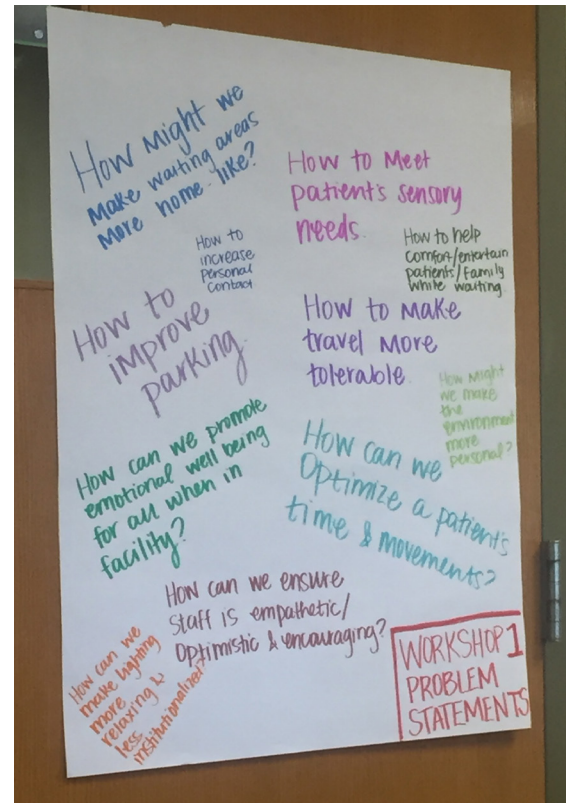 How Might we
make waiting areas
more home-like?
How to Meet
patient's sensory
needs.
How to
increase
personal
contact
How to help
comfort/entertain
patients/family
while waiting.
How to
improve
parking.
How to make
travel more
tolerable.
How Might
we make
the
environment
more
personal?
How can we promote
emotional well being
for all when in
facility?
How can we
Optimize a patient's
time & movements?
How can we ensure
Staff is empathetic/
Optimistic & encouraging?
How can we
make lighting
more
relaxing &
less
institutionalized?
WORKSHOP 1
PROBLEM
STATEMENTS